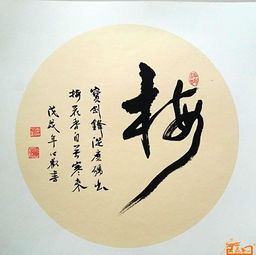 梅
宝剑锋从磨砺出
梅花香自苦寒来
戊戌年